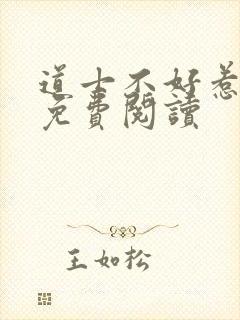 道士不好惹
免費閱讀
王如松